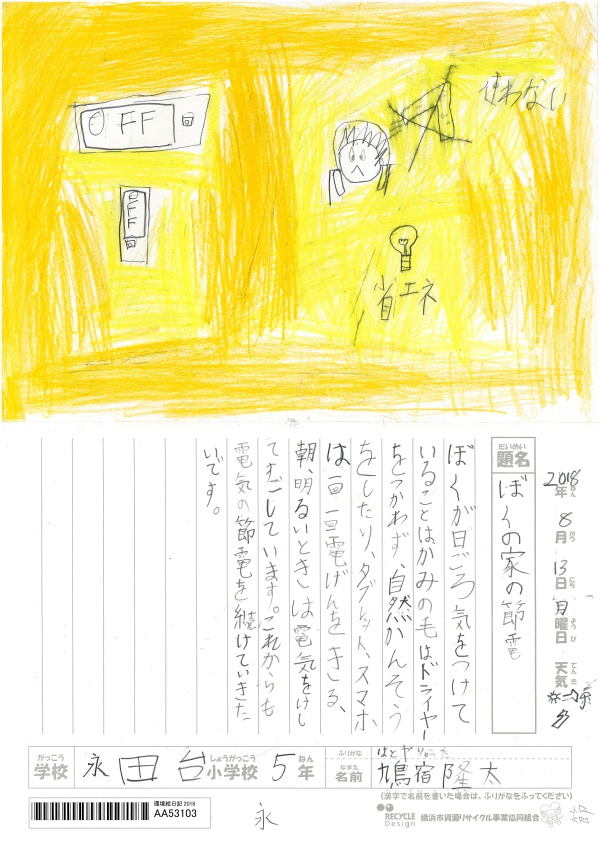 OFF
回
OFF
回
使わない
省エネ
2018年ねん8月がつ13日にち月曜日ようび 天気てんき
題名だいめい
ぼくの家の節電
ぼくが日ごろ気をつけて
いることは、かみの毛はドライヤー
をつかわず、自然かんそう
をしたり、タブレット、スマホ
は一回一回電げんをきる、
朝、明るいときは電気をけし
てすごしています。これからも
電気の節電を続けていきた
いです。
がっこう
学校 永田台小学校しょうがっこう 5年ねん
ふりがな
なまえ
名前 鳩宿隆太
(漢字で名前を書いた場合は、ふりがなをふってください)
環境絵日記 2018
AA53103
永
RECYCLE Design
横浜市資源リサイクル事業協同組合